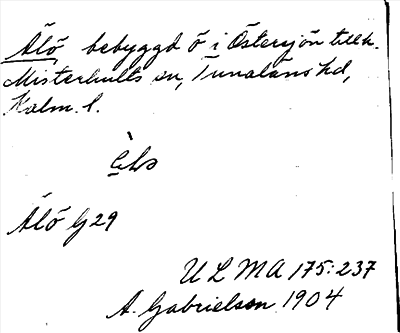 Älö bebyggd ö i Östersjön tillh.
Misterhults sn, Tunaläns hd,
Kalm. l.
Älö G 29
U L M A 175:237
A. Gabrielson 1904